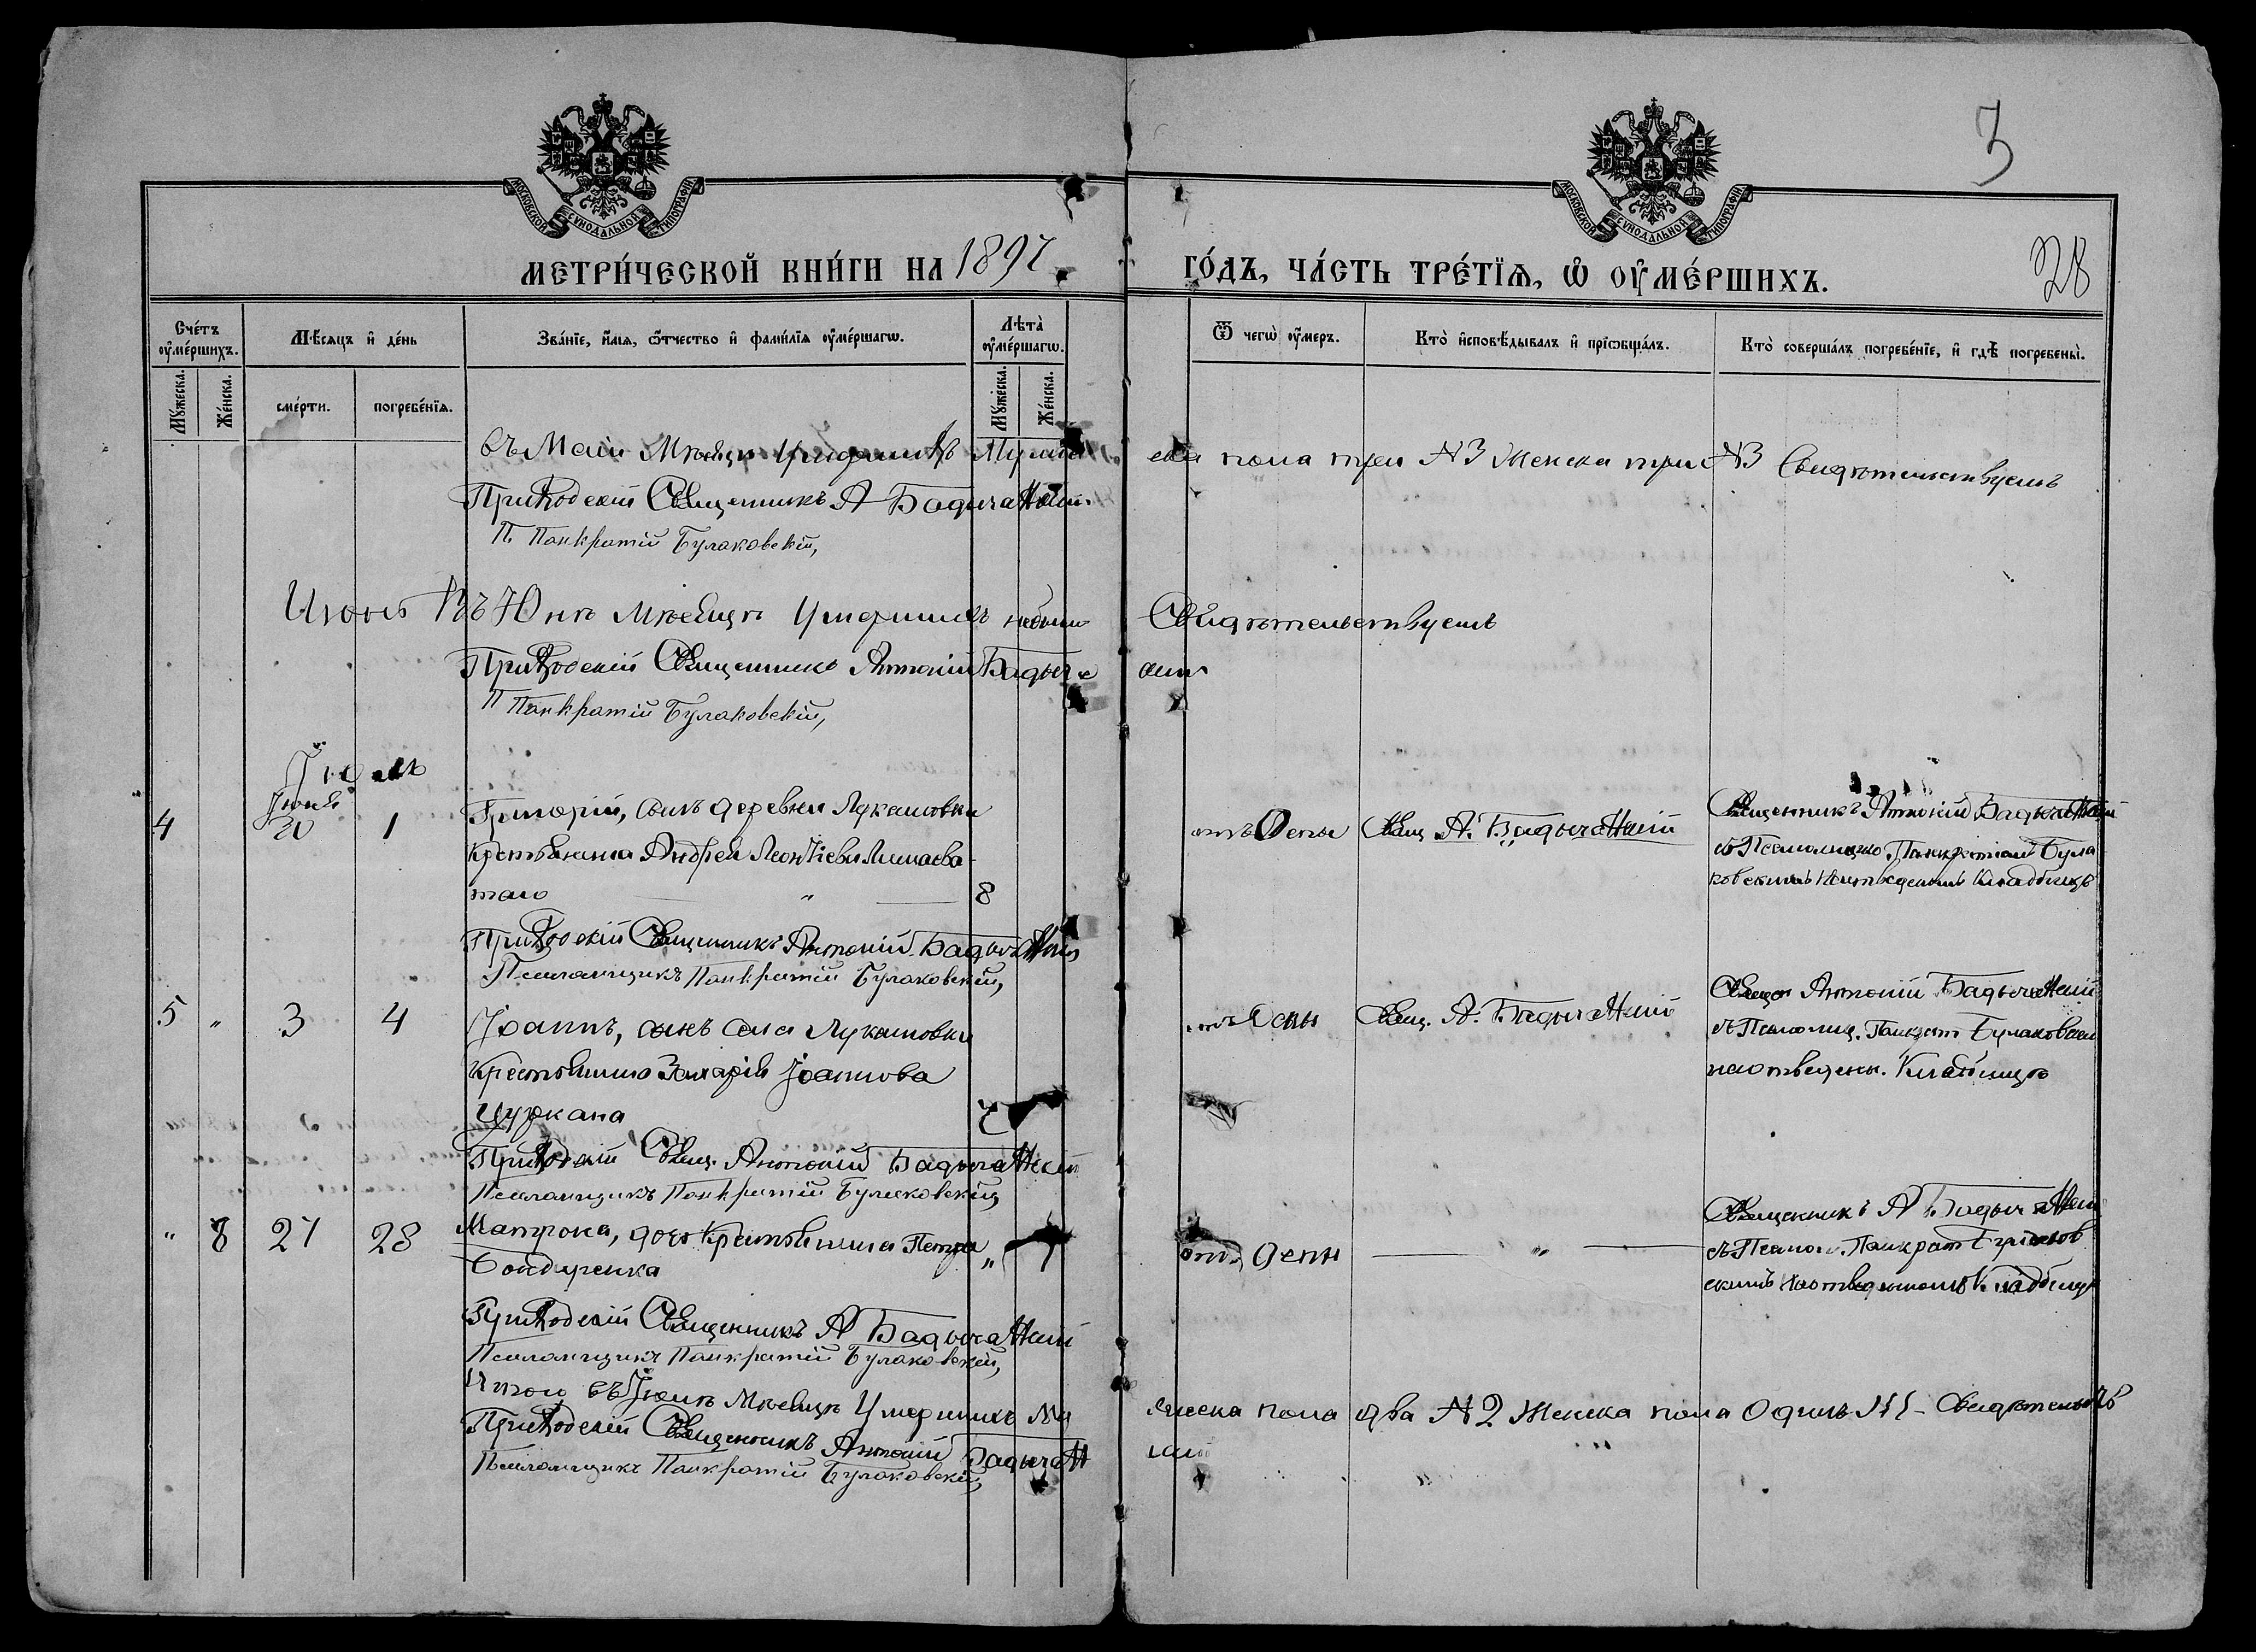 3
28
МОСКОВСКОЙ СѴНОДАЛЬНОЙ ТИПОГРАФІИ
МОСКОВСКОЙ СѴНОДАЛЬНОЙ ТИПОГРАФІИ
МЕТРИ́ЧЕСКОЙ КНИ́ГИ НА 1897
ГО́ДЪ, ЧА́СТЬ ТРЕ́ТІѦ, Ѡ҆ ОУ҆МЕ́РШИХЪ.
Сче́тъ оу҆ме́ршихъ.
Мꙋ́жеска.
Же́нска.
Мѣ́сѧцъ и҆ де́нь
сме́рти.
погребе́нїѧ.
Зва́нїе, и҆́мѧ, ѻ҆́тчество и҆ фами́лїѧ оу҆ме́ршагѡ.
Лѣта̀ оу҆ме́ршагѡ.
Мꙋ́жеска.
Же́нска.
Ѿ чегѡ̀ оу҆́меръ.
Кто̀ и҆сповѣ́дывалъ и҆ прїѡбща́лъ.
Кто̀ соверша́лъ погребе́нїе, и҆ гдѣ̀ погребены̀.
въ Маи Мѣсяцѣ Умершихъ Муже
ска пола три №3 Женска три №3 Свидѣтельствуемъ
Приходскій Священникъ А Бадычаскій
П. Панкратій Булаковскій,
Июнь Въ Юнѣ Мѣсяцѣ Умершихъ небыло
Свидѣтельствуемъ
Приходскій Священникъ Антоній
П Панкратій Булаковскій,
Іюль
Іюня
4 30 1 Григорій, сынъ деревни Лукашовки
крестьянина Андрея Леонтіева
8
отъ Оспы Свящ А.
Священникъ Антоній
съ Псаломщико. Панкратіемъ Була
ковскимъ отведеномъ Кладбищѣ
Приходскій Священникъ Антоній
Псаломщикъ Панкратій Булаковскій,
5 „ 3 4 Іоаннъ, сынъ села Лукашовки
Крестьянина Захарія Іоаннова
Цуркана
отъ Оспы Свящ. А.
Священ Антоній
съ Псаломщ. Панкрат Булаковским
наотведенн. Кладбищѣ
Приходскій Свящ. Антоній
Псаломщикъ Панкратій Булаковскій,
„ 8 27 28 Матрона, дочь Крестьянина Петра
Бондаренка
отъ Оспы „
Священникъ А
съ Псалом. Панкрат Булаков
скимъ наотведенномъ Кладбищѣ
Приходскій Священникъ А
Псаломщикъ Панкратій Булаковскій,
Итого въ Іюлѣ Мѣсяцѣ Умершихъ Му
жеска пола два №2 Женска пола Одинъ №1
Приходскій Священникъ Антоній
Псаломщикъ Панкратій Булаковскій,